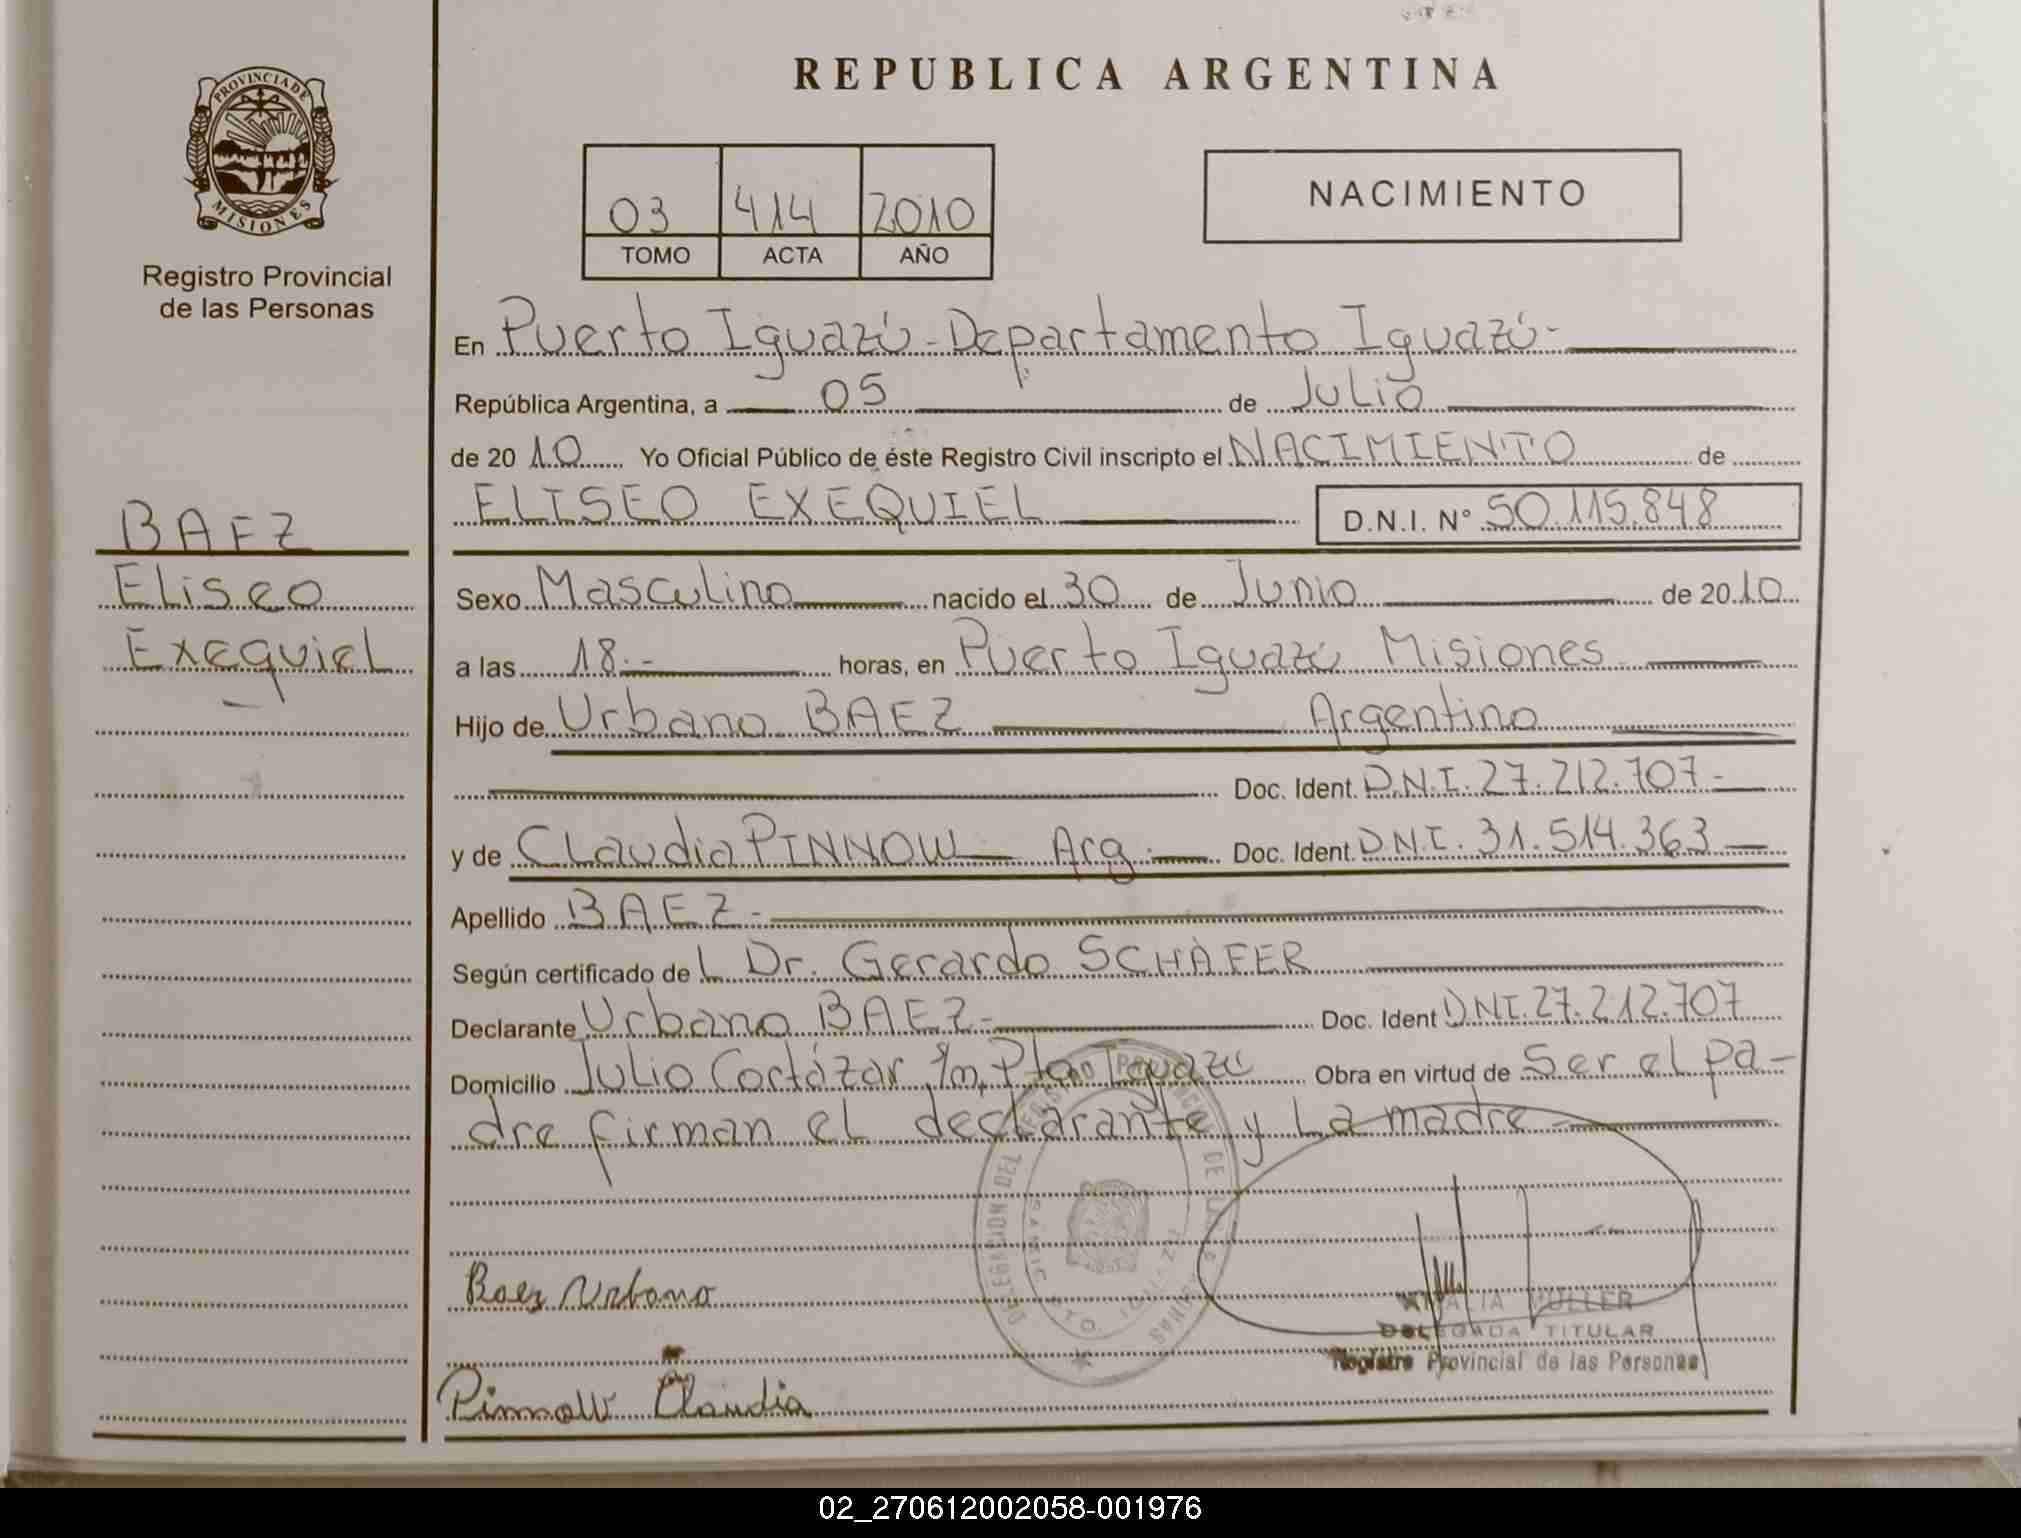 REPUBLICA ARGENTINA
PROVINCIA DE
MISIONES
Registro Provincial
de las Personas
03 414 2010
TOMO ACTA AÑO
NACIMIENTO
En Puerto Iguazú - Departamento Iguazú -
República Argentina, a 05 de Julio
de 2010 Yo Oficial Público de éste Registro Civil inscripto el NACIMIENTO de
ELISEO EXEQUIEL D.N.I. N° 50.115.848
BAEZ
Eliseo
Exequiel
Sexo Masculino nacido el 30 de Junio de 2010
a las 18.- horas, en Puerto Iguazú Misiones
Hijo de Urbano BAEZ Argentino
Doc. Ident. D.N.I. 27.212.707 -
y de Claudia PINNOW Arg. Doc. Ident. D.N.I. 31.514.363
Apellido BAEZ -
Según certificado de L Dr. Gerardo SCHAFER
Declarante Urbano BAEZ - Doc. Ident DNI. 27.212.707
Domicilio Julio Cortázar s/n, Pto Iguazú Obra en virtud de Ser el pa-
dre firman el declarante y La madre
Baez Urbano
Pinnow Claudia
DELEGACION DEL REGISTRO PROVINCIAL DE LAS PERSONAS
MULLER
DELEGADA TITULAR
Registro Provincial de las Personas
02_270612002058-001976